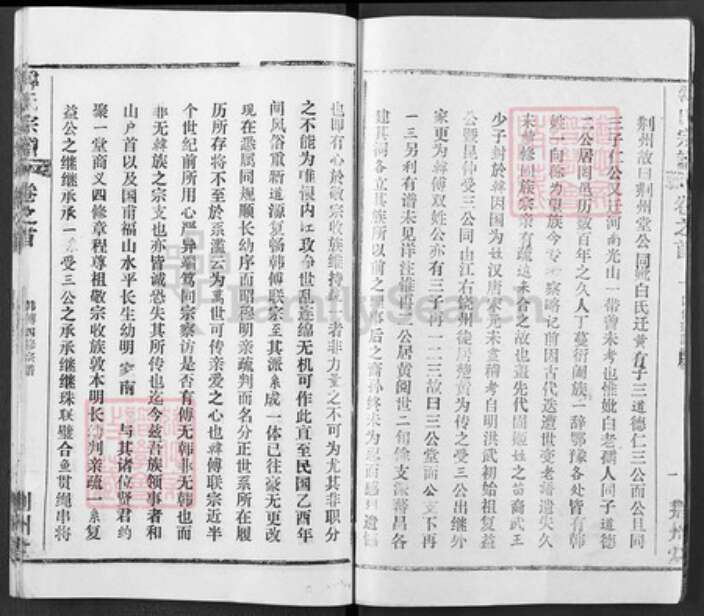 荆州故曰荆州堂公同妣白氏迁黄有子三道德仁三公而公且同
三子仁公又迁河南光山一带兽未考也惟妣白老孺人同子道德
二公居闵邑历数百年之久人丁蕃衍阖族一辞鄂豫各处皆有韩
姓一向称为望族今专察略记前因古代迭遭世变老谱遗失久
未督修同族宗亲有疏远未合之故也盖先代固姬姓之苗裔武王
少子封於韩因国为姓汉唐宋元未查稽考自明洪武初始祖复益
公暨昆仲受三公同由江右饶州徙居楚黄为传之受三公出继外
家更为韩傅双姓公亦有三子再一二三故曰三公堂而公支下再
一三另利有谱未见详注惟再二公居黄阁世二旬餘支派蕃昌各
建其祠各立其族所以前之
事后之裔孙终未为忍而感
也即有心於敬宗收族维持
者非力量之不可为尤其非职分
之不能为唯恨内江攻争世乱连绵无机可作此直至民国乙酉年
间风俗重新道源复畅韩傅联宗至其派系成一体已往豪无更改
现在悉属同规顺长幼序而昭穆明亲疏判而名分正世系所在履
历所存将不至於紊滥云为万世可传亲爱之心也韩傅联宗近半
个世纪前所用心严异端笃同宗察访是否有傅无韩非无韩也而
非无韩族之宗支也亦皆诚恐失其所传也迄今兹吾族领事者和
山户首以及国甫福山水平长生幼明
南
与其诸位贤君约
聚一堂商义四修章程尊祖敬宗收族敦本明长幼判亲疏一系复
益公之继继承承一系受三公之承承继继珠联璧合鱼贯绳串将
氏宗谱
卷之首
韩傅四修宗谱
荆州堂
宗谱
卷之首
一
荆州堂
FamilySearch